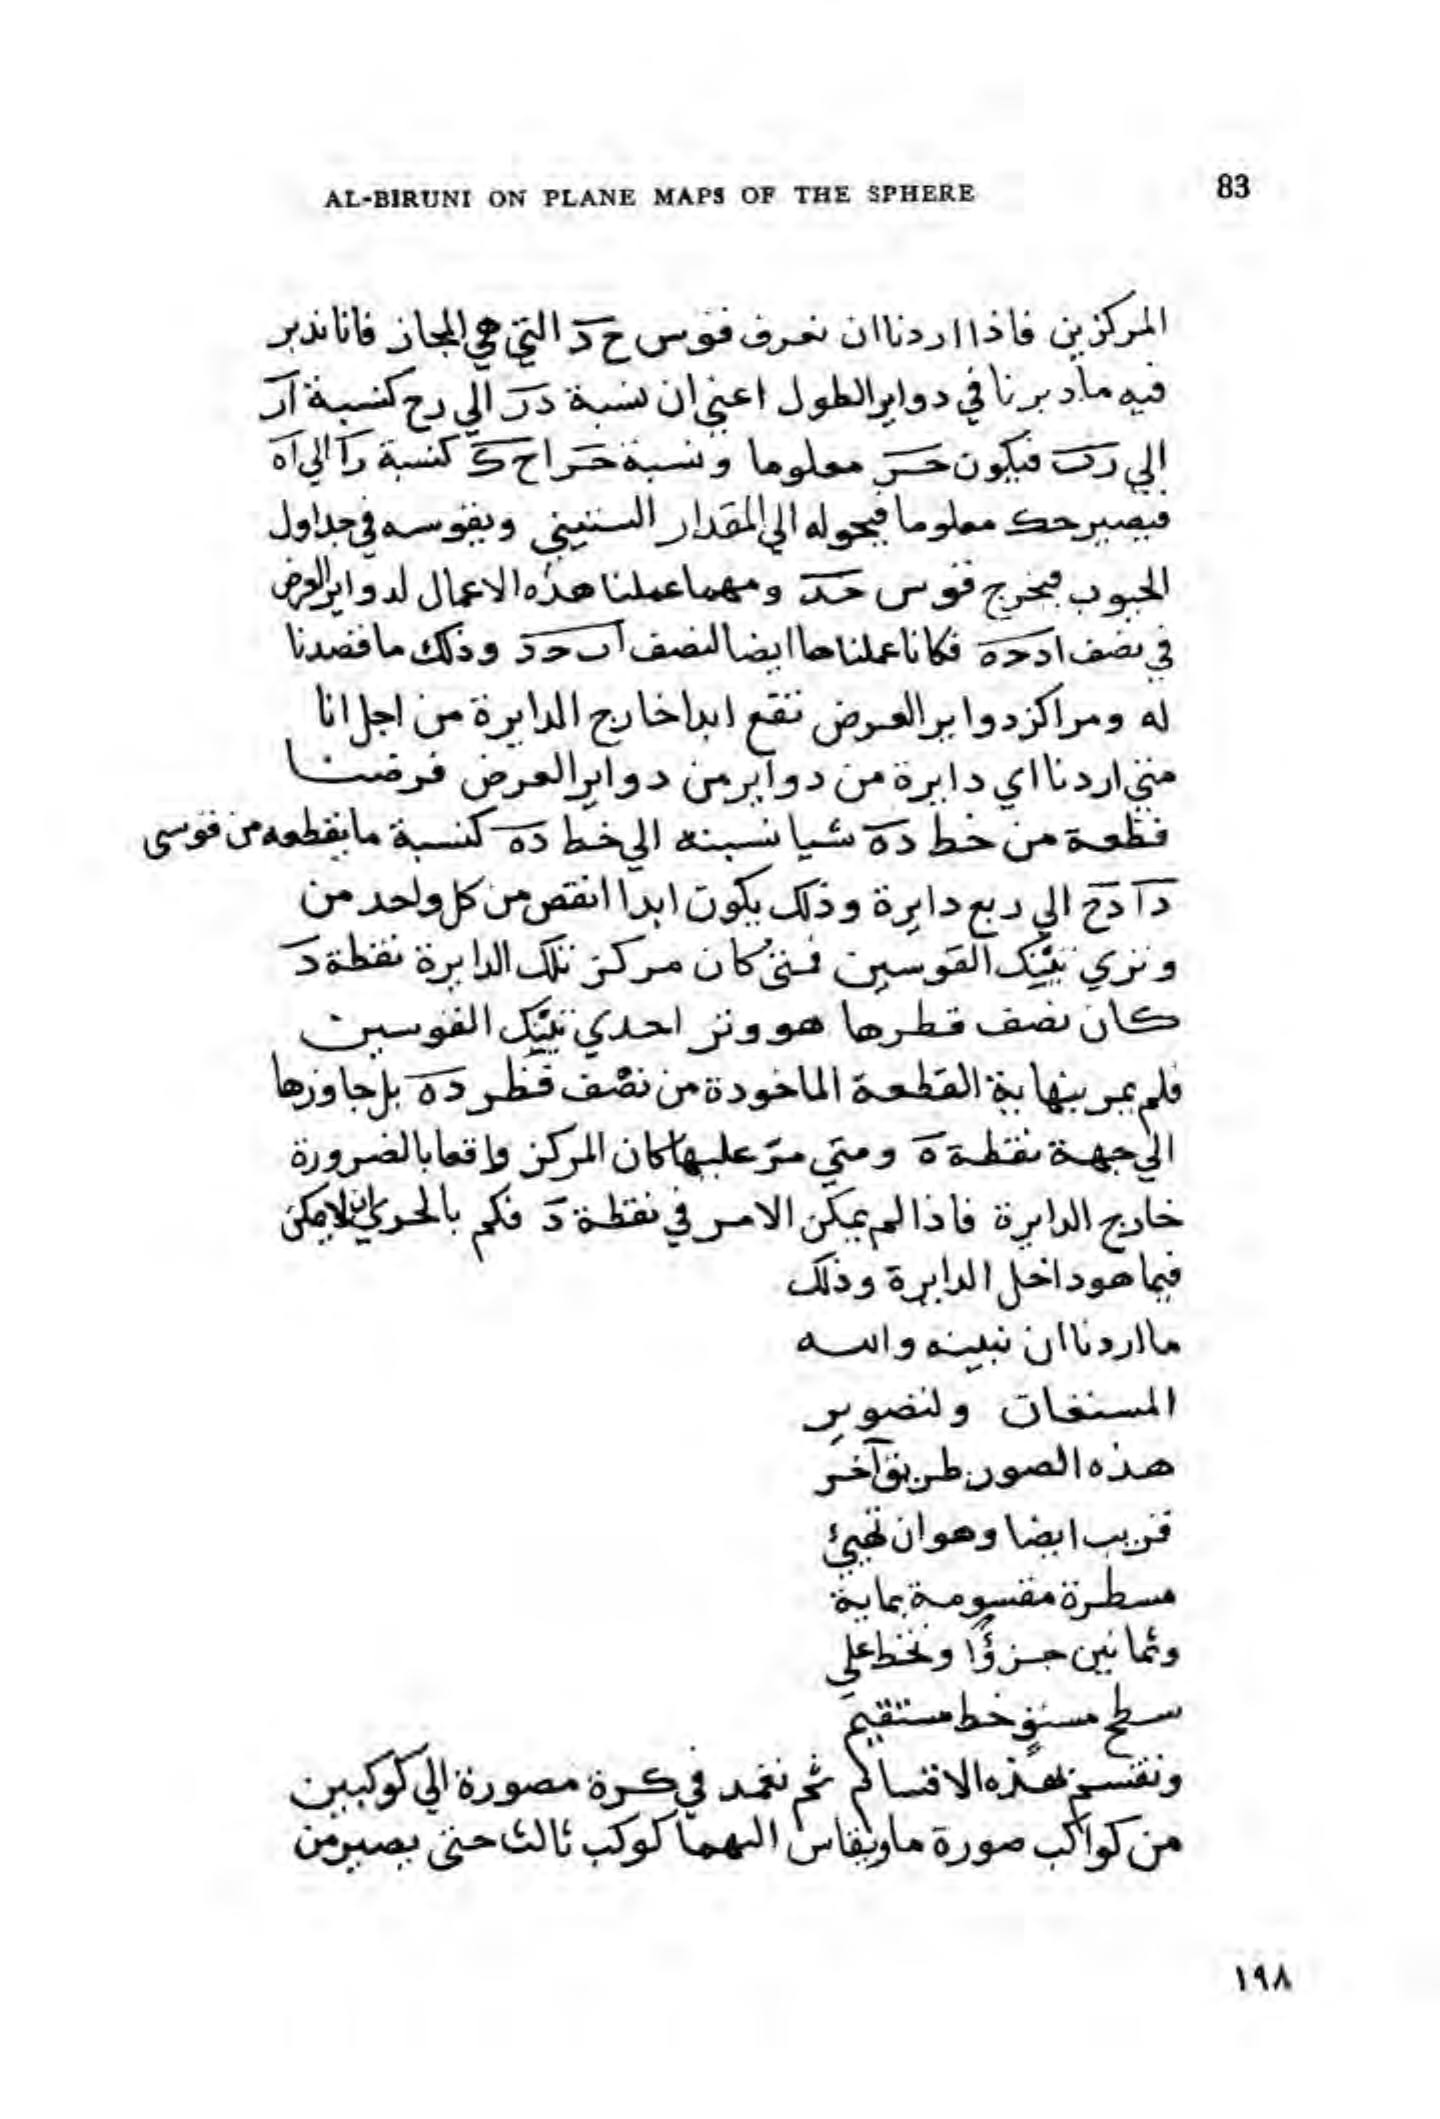 AL-BIRUNI ON PLANE MAPS OF THE SPHERE 83
المركزين فاذا اردنا ان نعرف قوس ح د التي هي المجاز فانا ندبر
فيه ما دبرنا في دواير الطول اعني ان نسبة در الي رح كنسبة ار
الي رب فيكون حر معلوما ونسبة حر ا ح ك كنسبة را الي اه
فيصير حك معلوما فيحوله الي المقدار الستيني ويقوسه في جداول
الجيوب فيخرج قوس حد ومهما عملنا هذه الاعمال لدواير العرض
في نصف ادحه فكانا عملناها ايضا لنصف اب حد وذلك ما قصدنا
له ومراكز دواير العرض تقع ابدا خارج الدايرة من اجل انا
متي اردنا اي دايرة من دواير من دواير العرض فرضنا
قطعة من خط ده شيا نسبته الي خط ده كنسبة ما يقطعه من قوسي
دا دح الي ربع دايرة وذلك يكون ابدا انقص من كل واحد من
وتري تينك القوسين فمتي كان مركز تلك الدايرة نقطة د
كان نصف قطرها هو وتر احدي تينك القوسين
فلم يمر بنهاية القطعة الماخوذة من نصف قطر ده بل جاوزها
الي جهة نقطة ه ومتي مر عليها كان المركز واقعا بالضرورة
خارج الدايرة فاذا لم يمكن الامر في نقطة د فكم بالحري ان لا يمكن
فيما هو داخل الدايرة وذلك
ما اردنا ان نبينه والله
المستعان ولتصوير
هذه الصور طريق آخر
قريب ايضا وهو ان نهيئ
مسطرة مقسومة بماية
وثمانين جزؤا ونخط علي
سطح مستو خط مستقيم
ونقسم بهذه الاقسام ثم نعمد في كرة مصورة الي كوكبين
من كواكب صورة ما ويقاس اليهما كوكب ثالث حتي يصير من
١٩٨